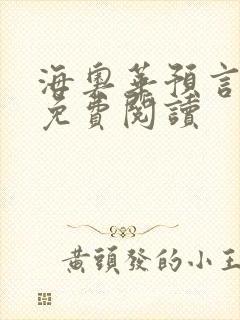 海奧華預言
免費閱讀
黃頭發的小王